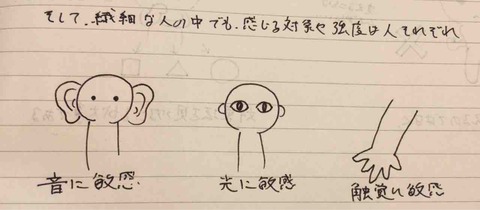 そして、繊細な人の中でも、感じる対象や強度は人それぞれ
音に敏感
光に敏感
触覚に敏感